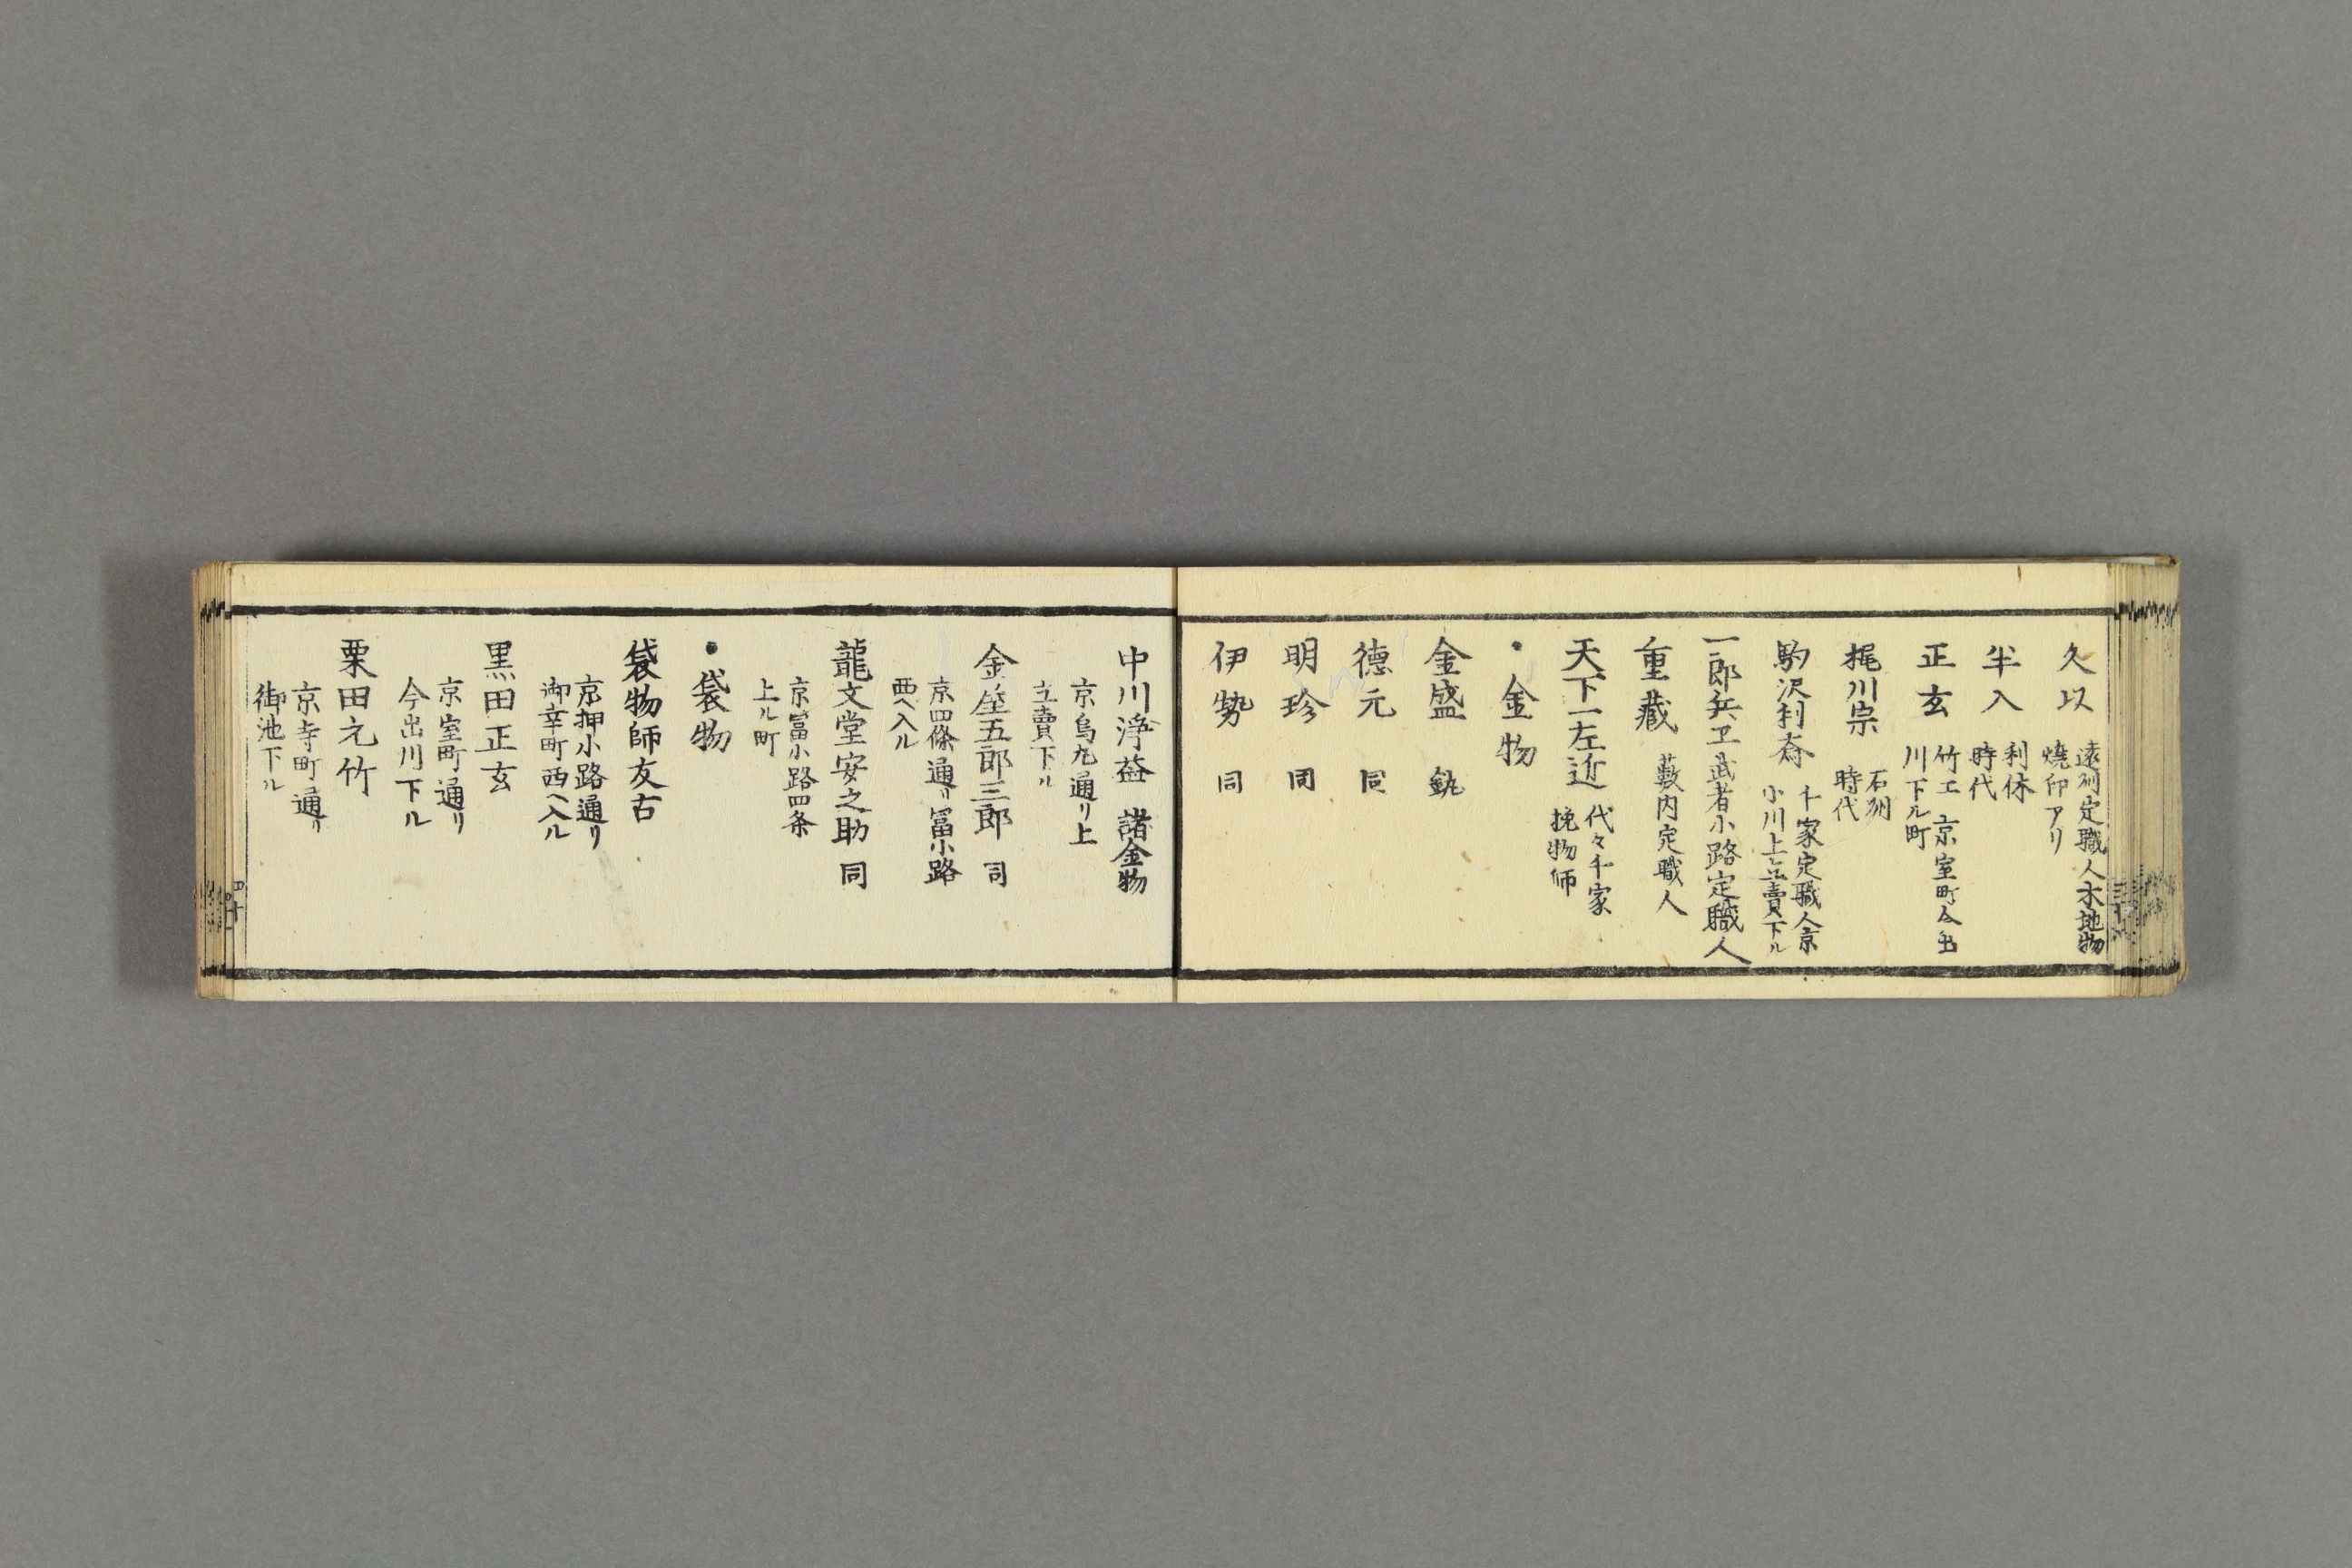 久以
遠州定職人木地物
焼印アリ
半入
利休
時代
正玄
竹工 京室町今出
川下ル町
梶川宗
石州
時代
駒沢利斎
千家定職人京
小川上立賣下ル
一郎兵卫 武者小路定職人
重藏 藪内定職人
天下一左近
代々千家
挽物師
・金物
金盛
德元 同
明珍 同
伊勢 同
中川浄益 諸金物
京烏丸通リ上
立賣下ル
金屋五郎三郎 同
京四條通リ冨小路
西ヘ入ル
龍文堂安之助 同
京冨小路四条
上ル町
・袋物
袋物師友古
京押小路通リ
御幸町西ヘ入ル
黒田正玄
京室町通リ
今出川下ル
栗田元竹
京寺町通リ
御池下ル